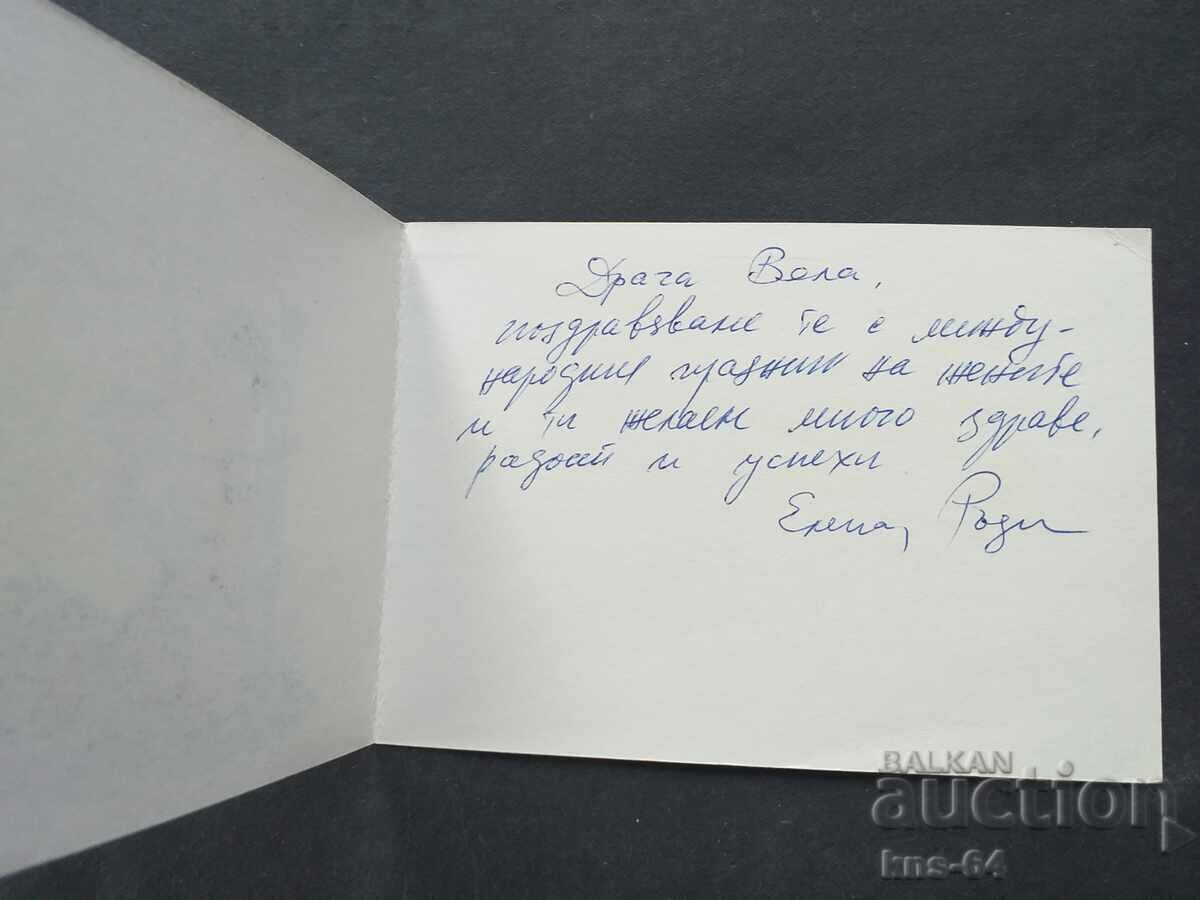 Драга Вела,
поздравяваме те с между-
народния празник на жените
и ти желаем много здраве,
радост и успехи
Елена,
BALKAN
auction
kns-64